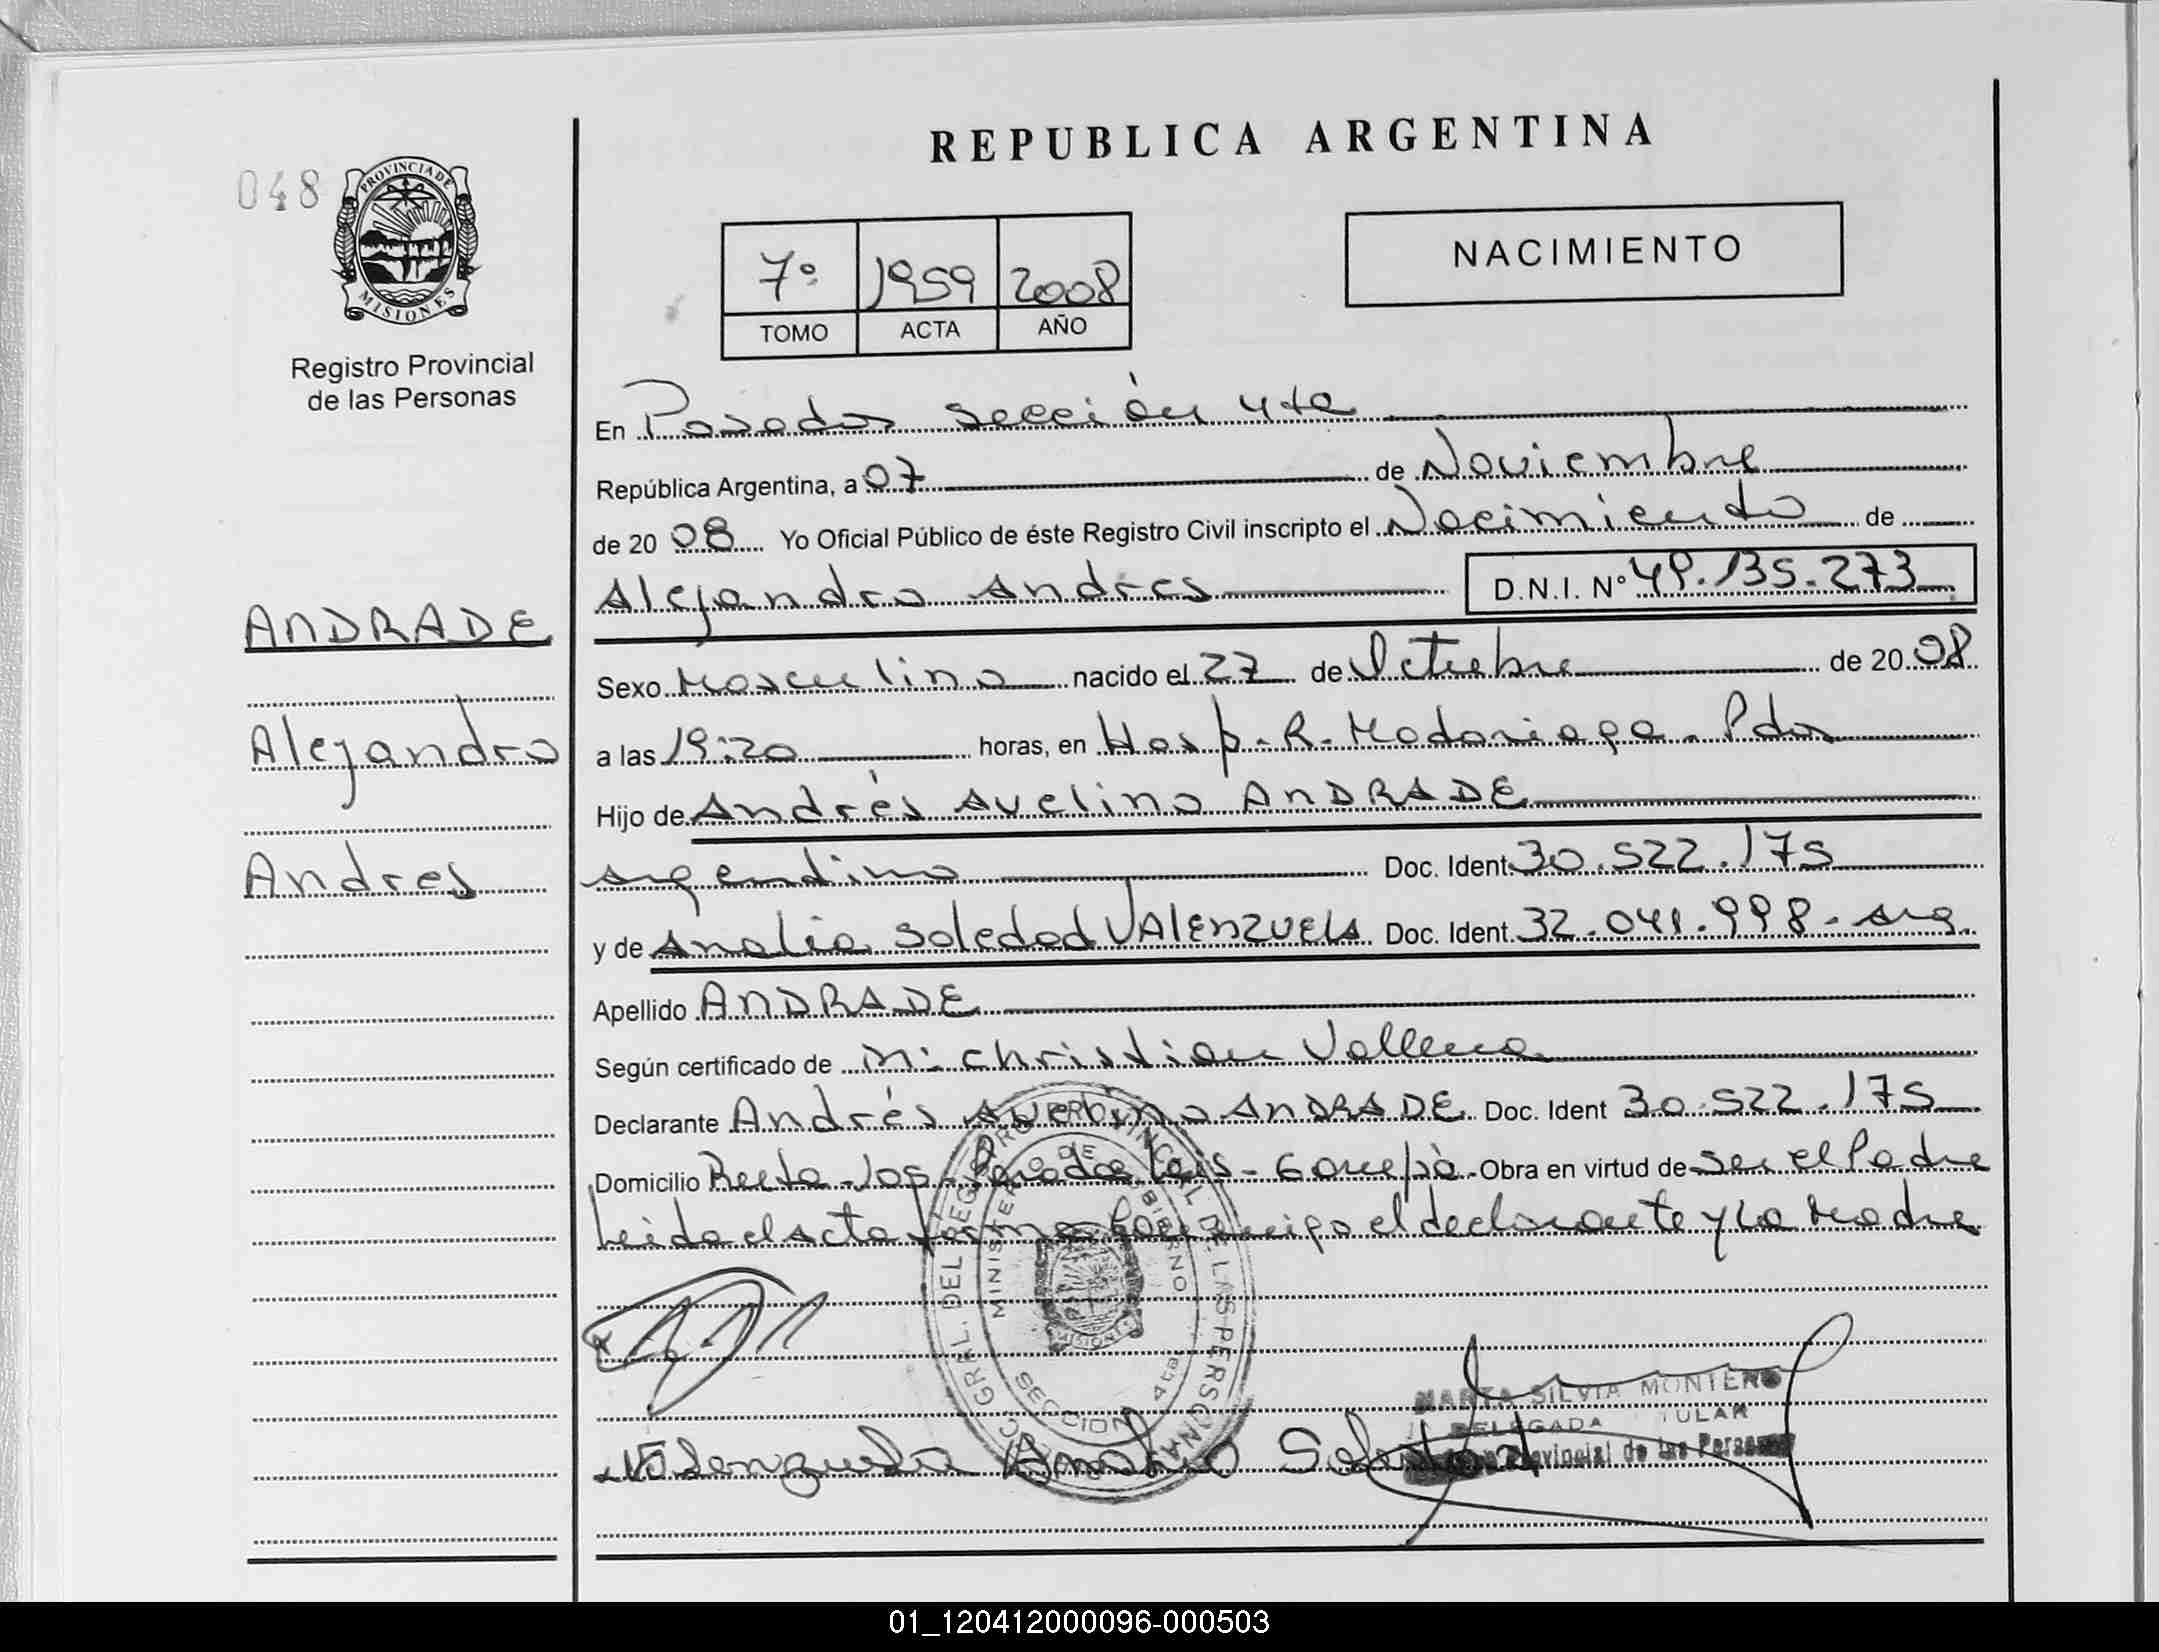 REPUBLICA ARGENTINA
048
PROVINCIA DE
MISIONES
Registro Provincial
de las Personas
7º 1959 2008
TOMO ACTA AÑO
NACIMIENTO
En Posadas sección 4ta
República Argentina, a 07 de Noviembre
de 2008 Yo Oficial Público de éste Registro Civil inscripto el Nacimiento de
Alejandro Andres D.N.I. Nº 49.135.273
ANDRADE
Alejandro
Andres
Sexo Masculino nacido el 27 de Octubre de 2008
a las 19:20 horas, en Hosp. R. Madariaga. Pdas
Hijo de Andrés Avelino ANDRADE
argentino Doc. Ident. 30.522.175
y de Analia Soledad VALENZUELA Doc. Ident. 32.041.998 - arg.
Apellido ANDRADE
Según certificado de Christian
Declarante Andrés Avelino ANDRADE Doc. Ident 30.522.175
Domicilio Garupá - Obra en virtud de ser el Padre
Leida el acta firma conmigo el declarante y la Madre
GRAL. DEL REGISTRO PROVINCIAL DE LAS PERSONAS
MINISTERIO DE GOBIERNO
MISIONES
SECCION 4ta
Valenzuela Analia Soledad
MARTA SILVIA MONTERO
DELEGADA TITULAR
Provincial de las Personas
01_120412000096-000503